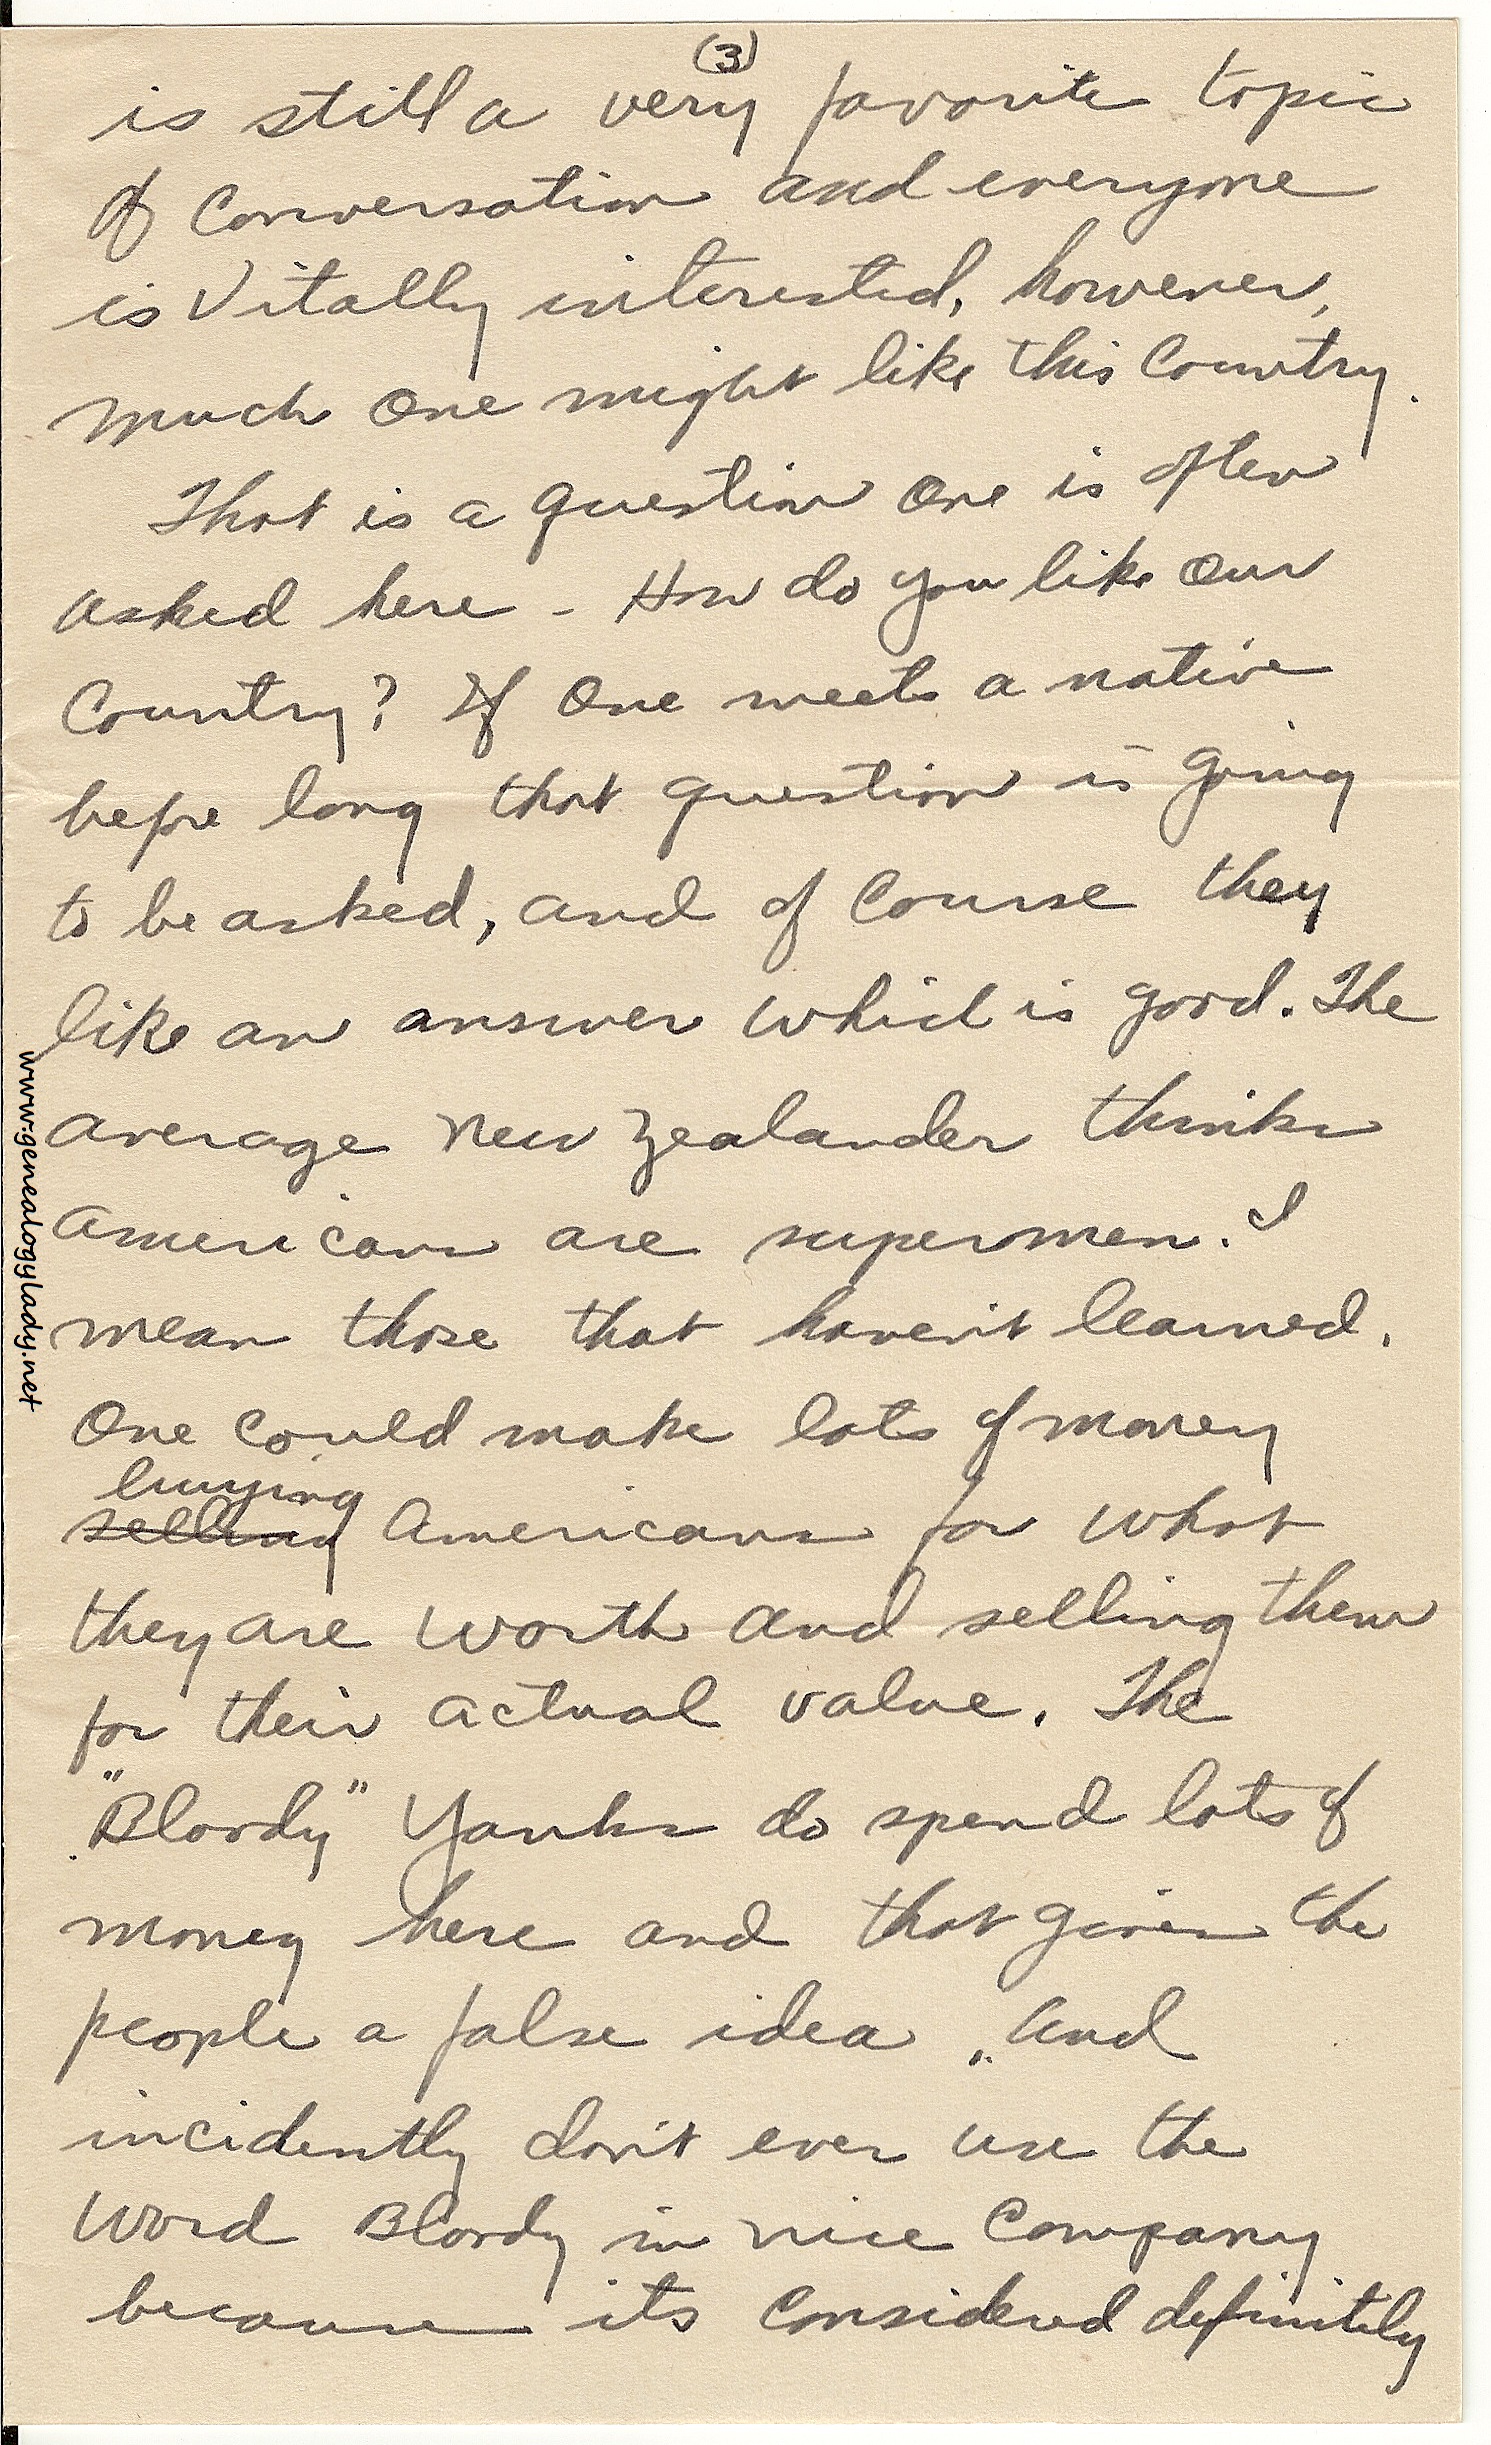 (3)
is still a very favorite topic
of Conversation and everyone
is Vitally interested, however,
much One might like this Country.
That is a question One is often
asked here - How do you like Our
Country? If One meets a native
before long that question is going
to be asked, and of Course they
like an answer which is good. The
average New Zealander thinks
Americans are supermen. I
mean those that haven't learned.
One Could make lots of money
buying
selling Americans for what
they are worth and selling them
for their actual value. The
"Bloody" Yanks do spend lots of
money here and that gives the
people a false idea. And
incidently don't ever use the
Word Bloody in nice Company
because its Considered definitely
www.genealogylady.net